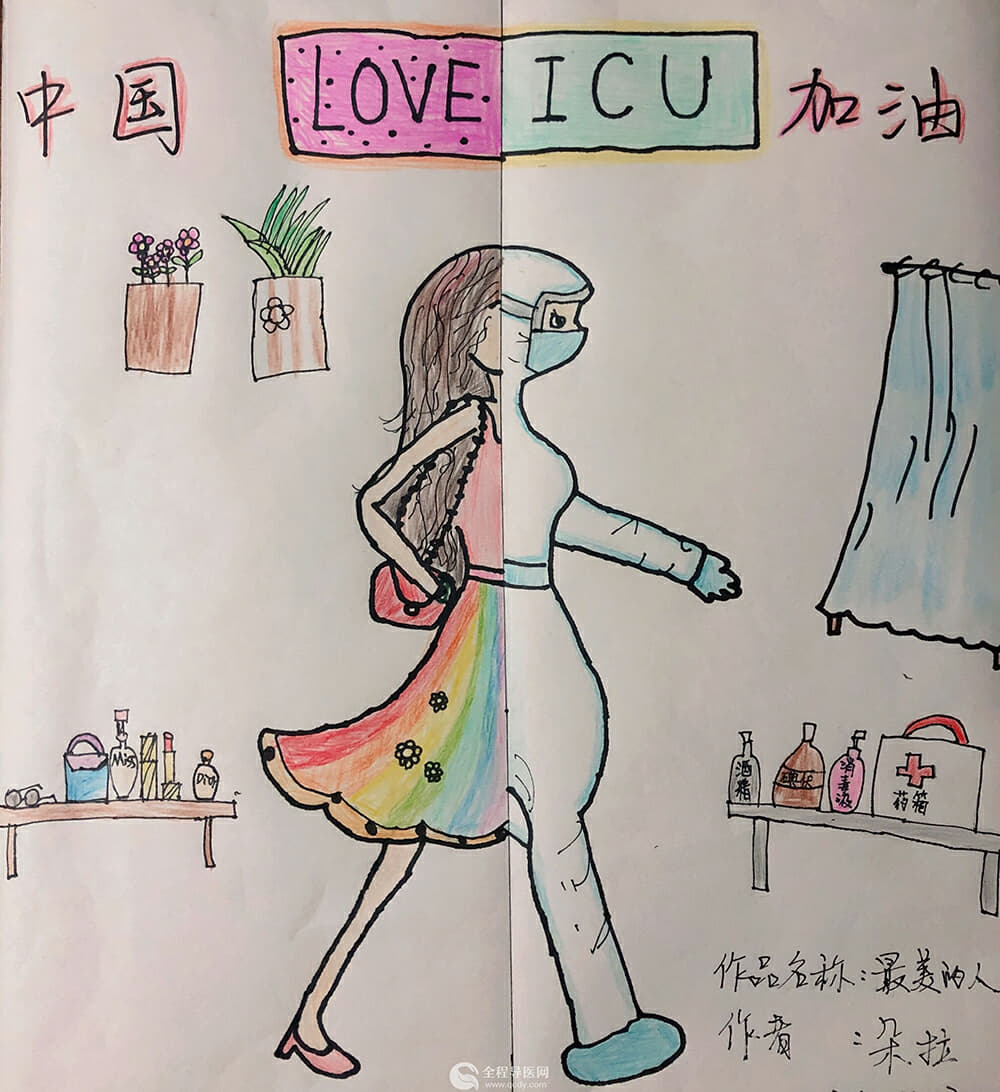 中国 LOVE ICU 加油
Miss
Dior
酒精
碘伏
消毒液
药箱
作品名称:最美的人
作者:朵拉
全程导医网
www.qcdy.com